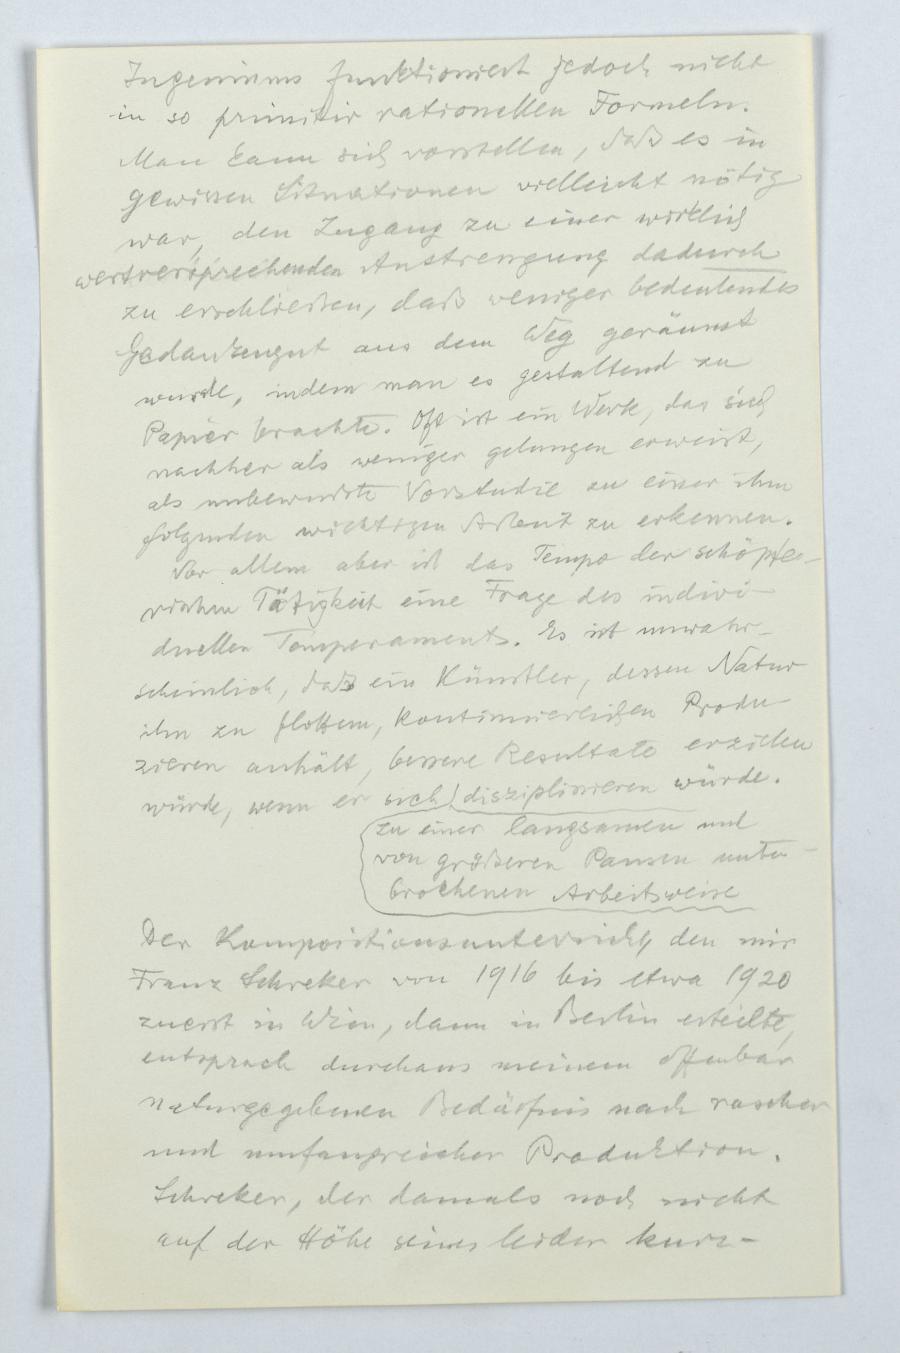 Ingeniums funktioniert jedoch nicht
in so primitiv rationellen Formeln.
Man kann sich vorstellen, daß es in
gewissen Situationen vielleicht nötig
war, den Zugang zu einer wirklich
wertversprechenden Anstrengung dadurch
zu erschließen, daß weniger bedeutendes
Gedankengut aus dem Weg geräumt
wurde, indem man es gestaltend zu
Papier brachte. Oft ist ein Werk, das sich
nachher als weniger gelungen erweist,
als unbewusste Vorstudie zu einer ihm
folgenden wichtigen Arbeit zu erkennen.
Vor allem aber ist das Tempo der schöpfe-
rischen Tätigkeit eine Frage des indivi-
duellen Temperaments. Es ist unwahr-
scheinlich, daß ein Künstler, dessen Natur
ihn zu flottem, kontinuierlichen Produ-
zieren anhält, bessere Resultate erzielen
würde, wenn er sich disziplinieren würde.
zu einer langsamen und
von größeren Pausen unter-
brochenen Arbeitsweise
Der Kompositionsunterricht, den mir
Franz Schreker von 1916 bis etwa 1920
zuerst in Wien, dann in Berlin erteilte,
entsprach durchaus meinem offenbar
naturgegebenen Bedürfnis nach rascher
und umfangreicher Produktion.
Schreker, der damals noch nicht
auf der Höhe seines leider kurz-